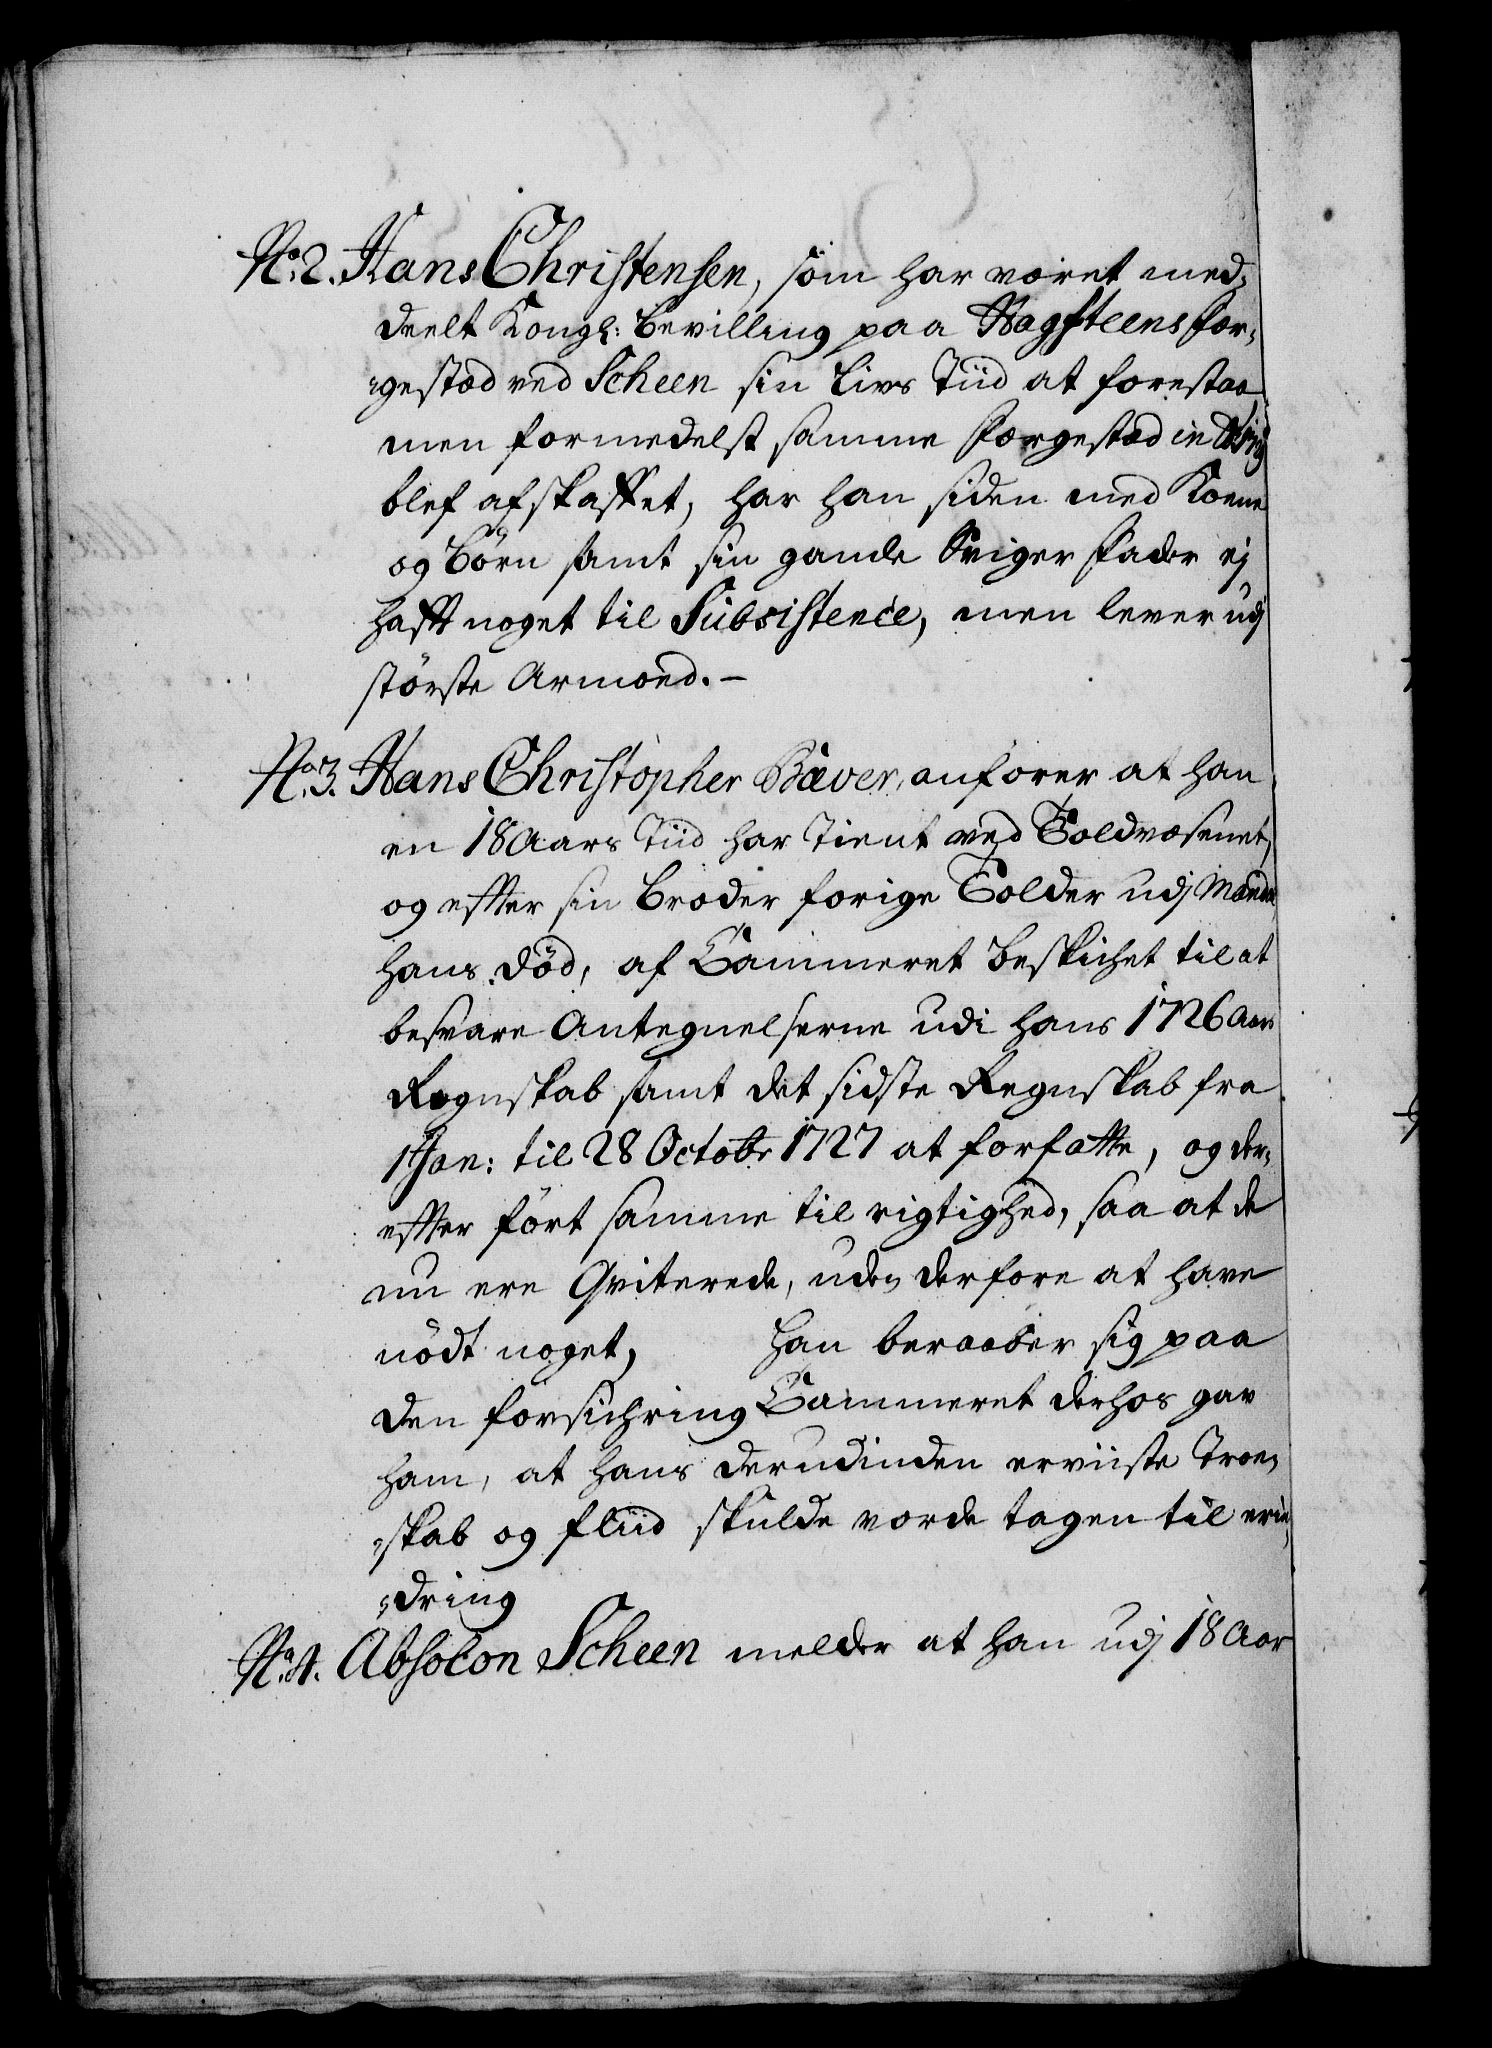 No: 2. Hans Christensen, som har været med,
deelt Kongl: bevilling paa Wagsteens fær,
,gestæd ved Scheen sin Livs Tiid at forestaa
men formedelst samme færgestæd in
blef afskaffet, har han siden med Kone
og Börn samt sin gamle Sviger Fader ej
hafft noget til Subsistence, men lever udj
störste Armoed. –
No 3. Hans Christopher Bæver, anförer at han
en 18 Aars Tiid har tient ved Toldvæsenet,
og effter sin broder forige Tolder udj
hans död, af Cammeret beskichet til at
besvare Antegnelserne udi hans 1726 Aars
Regnskab samt det sidste Regnskab fra
1 Jan: til 28 Octobr 1727 at forfatte, og der,
effter fört samme til rigtighed, saa at de
nu ere Qviterede, uden derfore at have
nödt noget, han beraaber sig paa
den forsichring Cammeret derhos gav
ham, at hans derudinden erviiste Troe,
,skab og fliid skulde vorde tagen til erin,
,dring
No: 4. Absolon Scheen melder at han udj 18 Aar